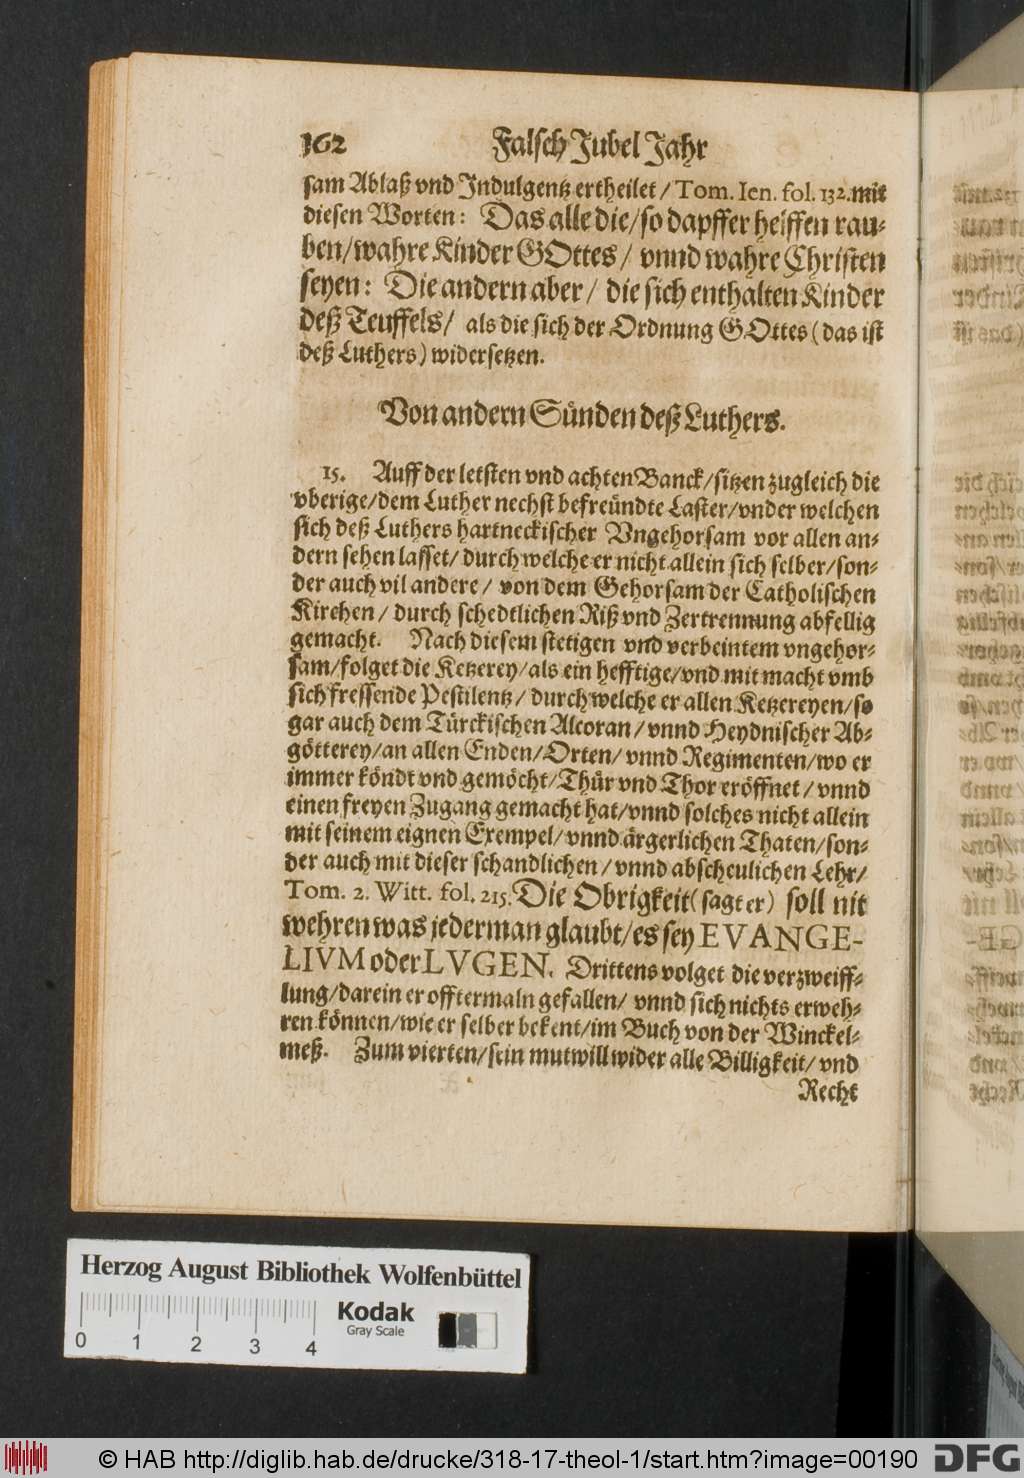 162 Falsch Jubel Jahr
sam Ablaß vnd Indulgentz ertheilet / Tom. Ien. fol. 132. mit
diesen Worten: Das alle die / so dapffer helffen rau-
ben / wahre Kinder GOttes / vnnd wahre Christen
seyen: Die andern aber / die sich enthalten Kinder
deß Teuffels / als die sich der Ordnung GOttes (das ist
deß Luthers) widersetzen.
Von andern Sünden deß Luthers.
15. Auff der letsten vnd achten Banck / sitzen zugleich die
vberige / dem Luther nechst befreündte Laster / vnder welchen
sich deß Luthers hartneckischer Vngehorsam vor allen an-
dern sehen lasset / durch welche er nicht allein sich selber / son-
der auch vil andere / von dem Gehorsam der Catholischen
Kirchen / durch schedtlichen Riß vnd Zertrennung abfellig
gemacht. Nach diesem stetigen vnd verbeintem vngehor-
sam / folget die Ketzerey / als ein hefftige / vnd mit macht vmb
sich fressende Pestilentz / durch welche er allen Ketzereyen / so
gar auch dem Türckischen Alcoran / vnnd Heydnischer Ab-
götterey / an allen Enden / Orten / vnnd Regimenten / wo er
immer köndt vnd gemöcht / Thür vnd Thor eröffnet / vnnd
einen freyen Zugang gemacht hat / vnnd solches nicht allein
mit seinem eignen Exempel / vnnd ärgerlichen Thaten / son-
der auch mit dieser schandlichen / vnnd abscheulichen Lehr /
Tom. 2. Witt. fol. 215. Die Obrigkeit (sagt er) soll nit
wehren was jederman glaubt / es sey EVANGE-
LIVM oder LVGEN. Drittens volget die verzweiff-
lung / darein er offtermaln gefallen / vnnd sich nichts erweh-
ren können / wie er selber bekent / im Buch von der Winckel-
meß. Zum vierten / sein mutwill wider alle Billigkeit / vnd
Recht
Herzog August Bibliothek Wolfenbüttel
Kodak
Gray Scale
0 1 2 3 4
© HAB http://diglib.hab.de/drucke/318-17-theol-1/start.htm?image=00190 DFG